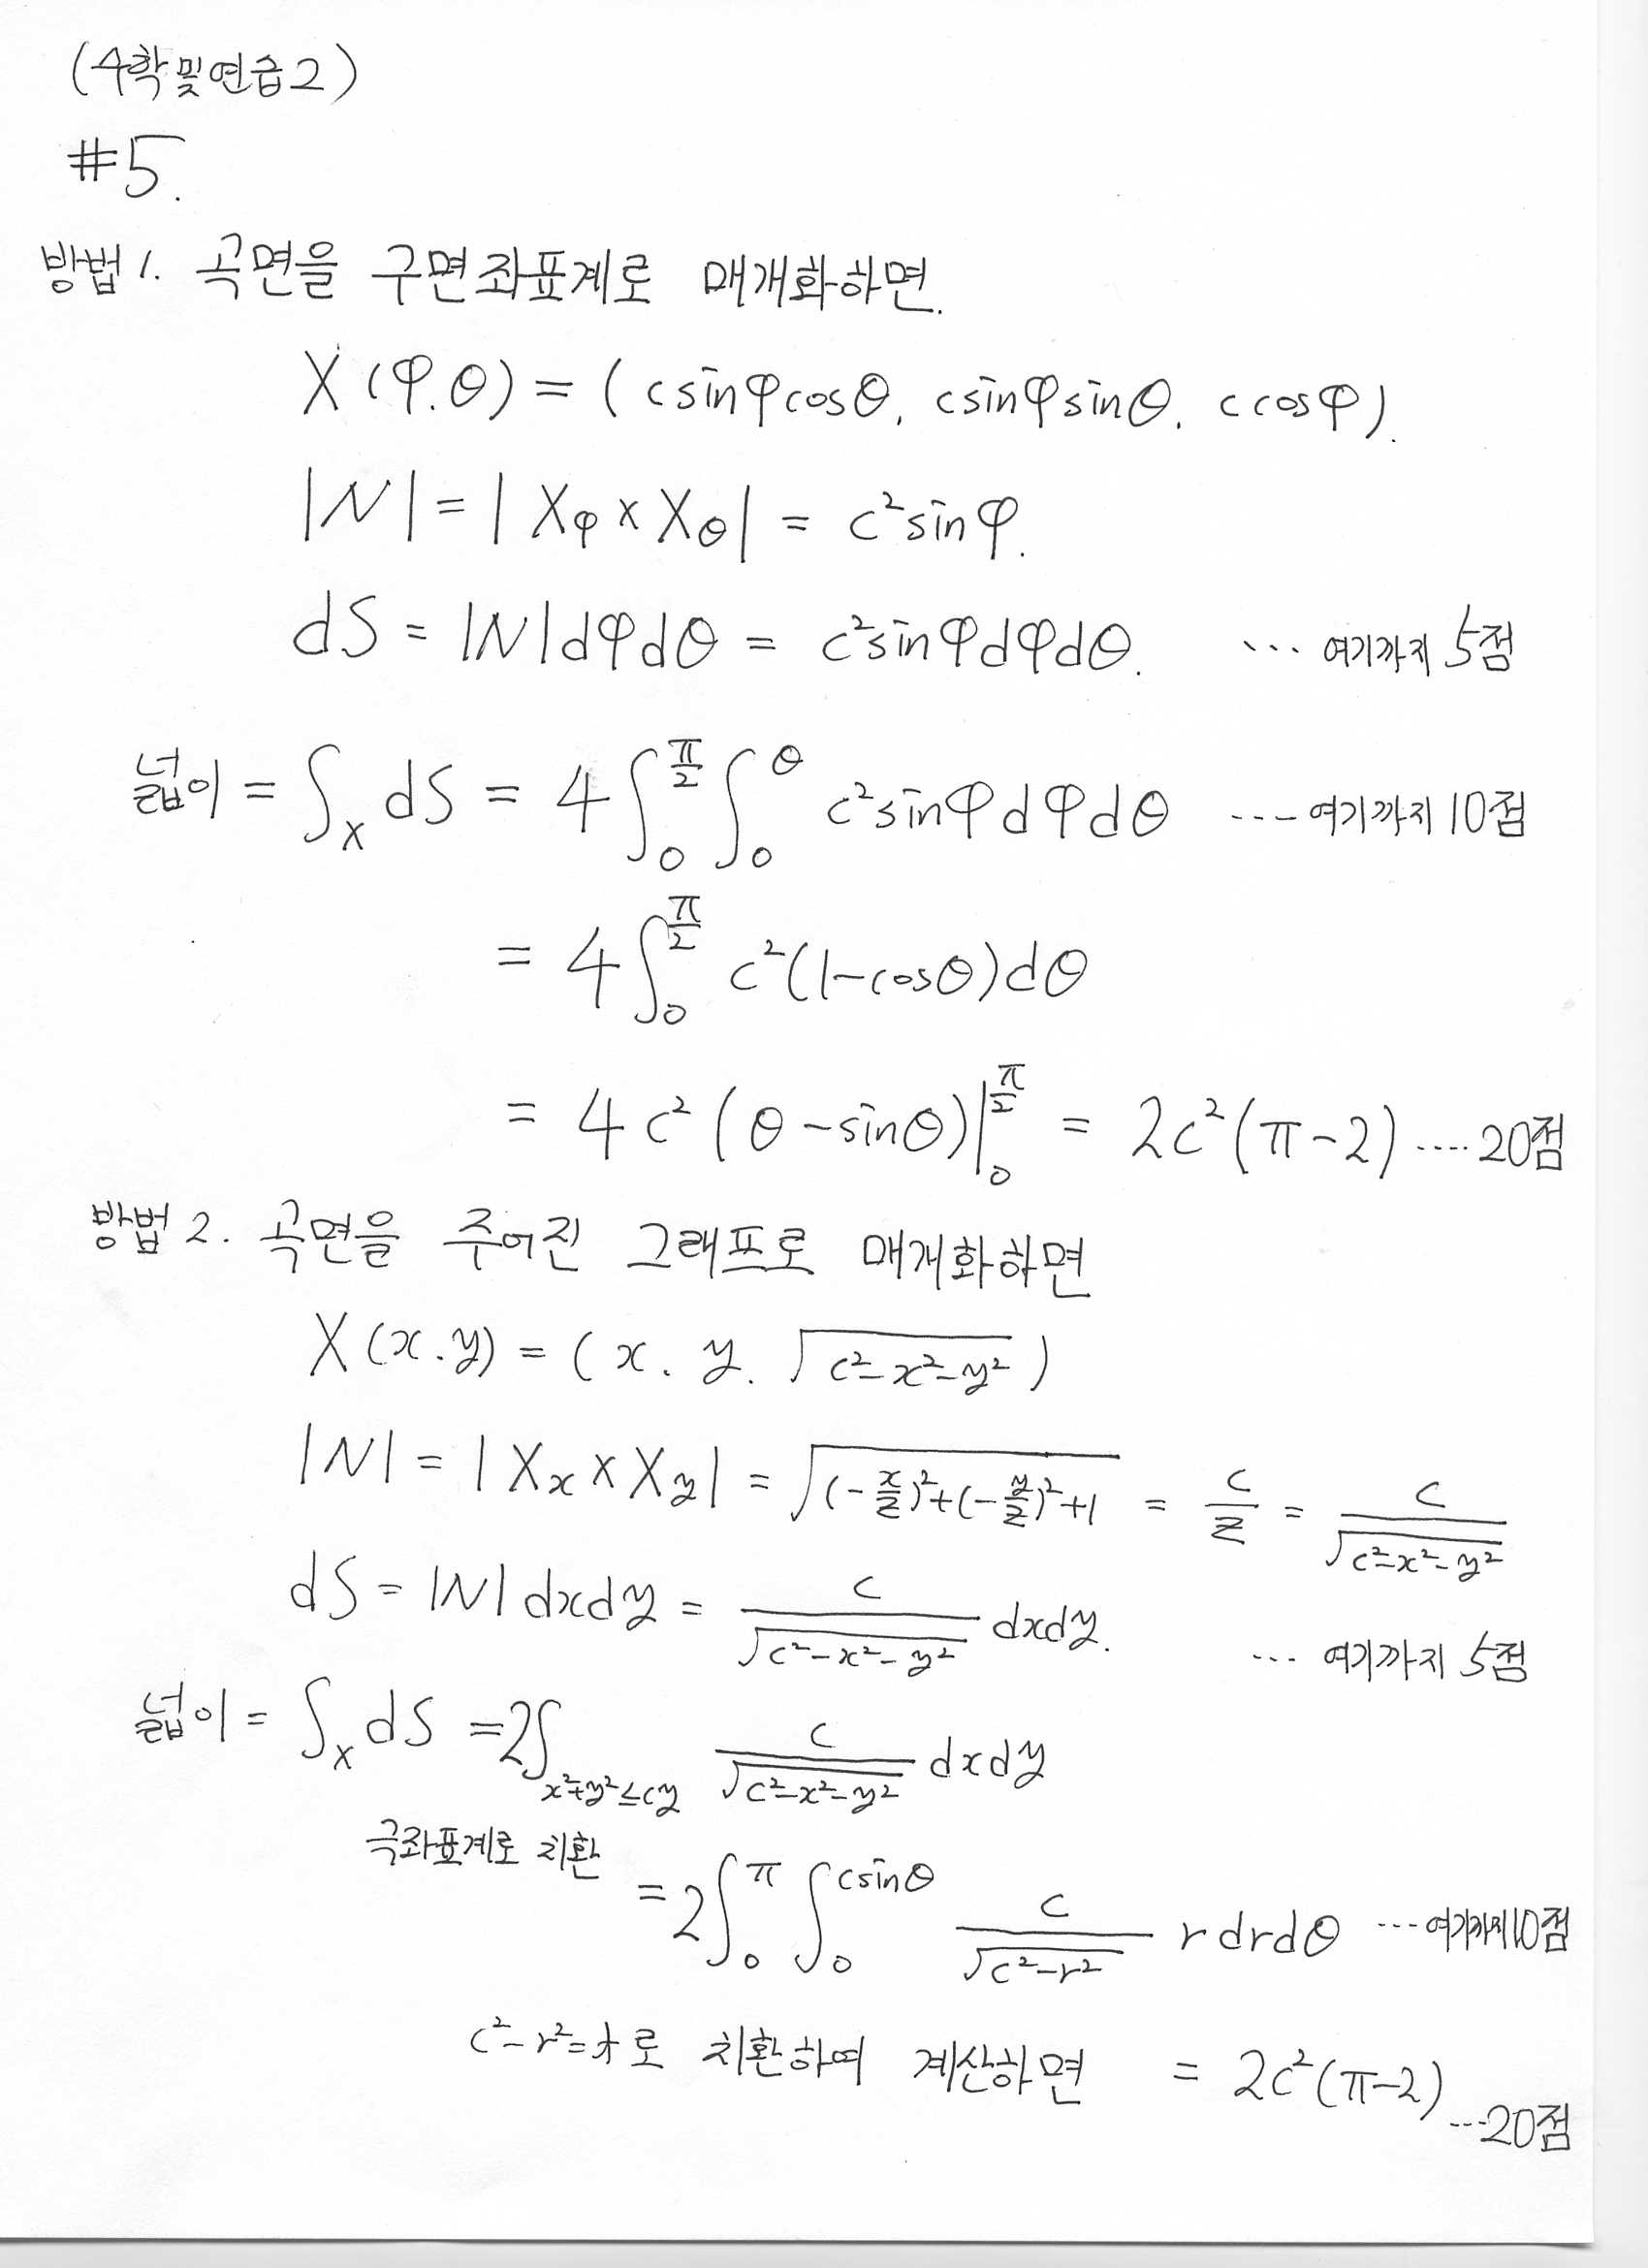 (수학및연습2)
#5.
방법 1. 곡면을 구면좌표계로 매개화하면.
X(φ.θ) = (c sinφ cosθ, c sinφ sinθ, c cosφ).
|N| = |Xφ × Xθ| = c² sinφ.
dS = |N|dφdθ = c² sinφ dφdθ. … 여기까지 5점
넓이 = ∫_X dS = 4∫_0^{π/2} ∫_0^θ c² sinφ dφdθ --- 여기까지 10점
= 4∫_0^{π/2} c²(1-cosθ)dθ
= 4c²(θ-sinθ)|_0^{π/2} = 2c²(π-2) .... 20점
방법 2. 곡면을 주어진 그래프로 매개화하면
X(x.y) = (x. y. √(c²-x²-y²))
|N| = |Xx × Xy| = √((-x/z)²+(-y/z)²+1) = c/z = c/√(c²-x²-y²)
dS = |N|dxdy = c/√(c²-x²-y²) dxdy. … 여기까지 5점
넓이 = ∫_X dS = 2∫_{x²+y²≤cy} c/√(c²-x²-y²) dxdy
극좌표계로 치환
= 2∫_0^π ∫_0^{c sinθ} c/√(c²-r²) r dr dθ … 여기까지 10점
c²-r²=t로 치환하여 계산하면 = 2c²(π-2)
…20점